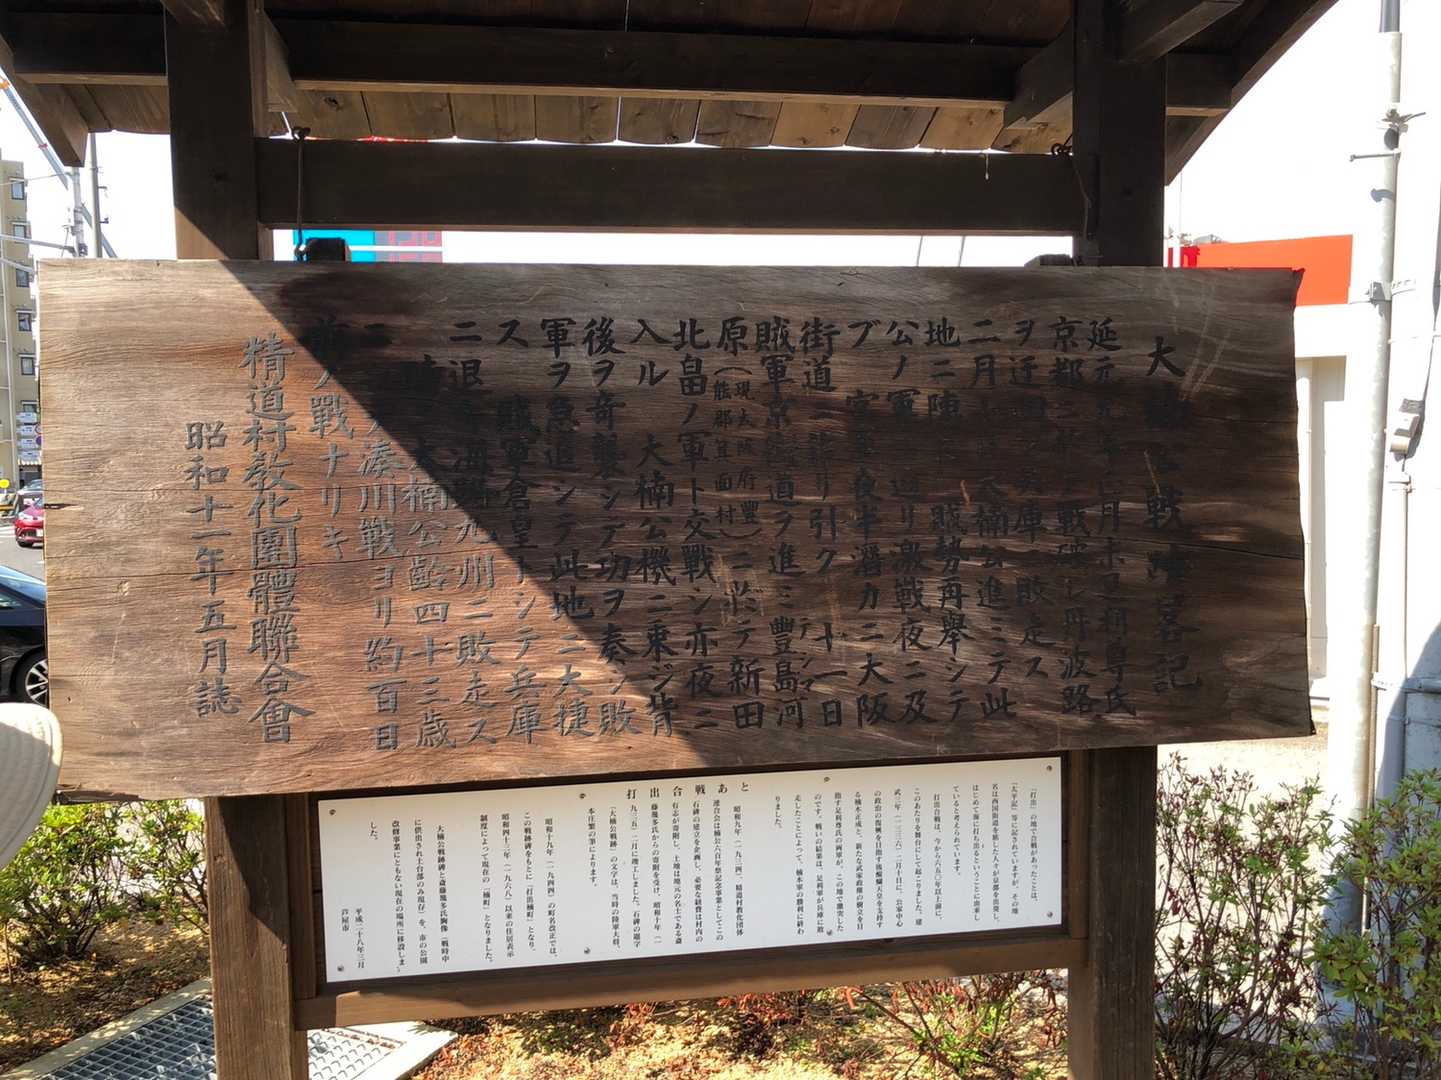 大楠公戦蹟畧記
延元元年二月 尊氏
京都ニ 戦破レ丹波路
ヲ迂 兵庫ニ敗走ス
二月 大楠公進ミテ此
地ニ陣 賊勢再擧シテ
公ノ軍 迫リ激戦夜ニ及
ブ 官軍夜半潜カニ大阪
街道 ヨリ引ク 十一日
賊軍京 道ヲ進ミ豊島河
テシマ
原(現大阪府豊能郡箕面村)ニ於テ新田
北畠ノ軍ト交戦シ亦夜ニ
入ル 大楠公機ニ乗ジ背
後ヲ奇襲シテ功ヲ奏シ敗
軍ヲ急追シテ此地ニ大捷
ス 賊軍倉皇トシテ兵庫
ニ退 九州ニ敗走ス
時 大楠公齢四十三歳
ニ 湊川戦ヨリ約百日
前ノ戰ナリキ
精道村教化團體聯合會
昭和十一年五月誌
打出合戦あと
「打出」の地で合戦があったことは、
『太平記』等に記されていますが、その地
名は西国街道を旅した人々が京都を出発し、
はじめて海に打ち出るということに由来し
ていると考えられています。
打出合戦は、今から六五〇年以上前に、
このあたりを舞台にして起こりました。建
武三年(一三三六)二月十日に、公家中心
の政治の復興を目指す後醍醐天皇を支持す
る楠木正成と、新たな武家政権の樹立を目
指す足利尊氏の両軍が、この地で激突した
のです。戦いの結果は、足利軍が兵庫に敗
走したことによって、楠木軍の勝利に終わ
りました。
昭和九年(一九三四)、精道村教化団体
連合会は楠公六百年祭記念事業としてこの
石碑の建立を企画し、必要な経費は村内の
有志が寄附し、土地は地元の名士である斎
藤幾多氏からの寄附を受け、昭和十年(一
九三五)二月に竣工しました。石碑の題字
「大楠公戦跡」の文字は、当時の陸軍大将、
本庄繁の筆によります。
昭和十九年(一九四四)の町名改正では、
この戦跡碑をもとに「打出楠町」となり、
昭和四十三年(一九六八)以来の住居表示
制度によって現在の「楠町」となりました。
大楠公戦跡碑と斎藤幾多氏胸像(戦時中
に供出され土台部のみ現存)を、市の公園
改修事業にともない現在の場所に移設しま
した。
平成二十八年三月
芦屋市